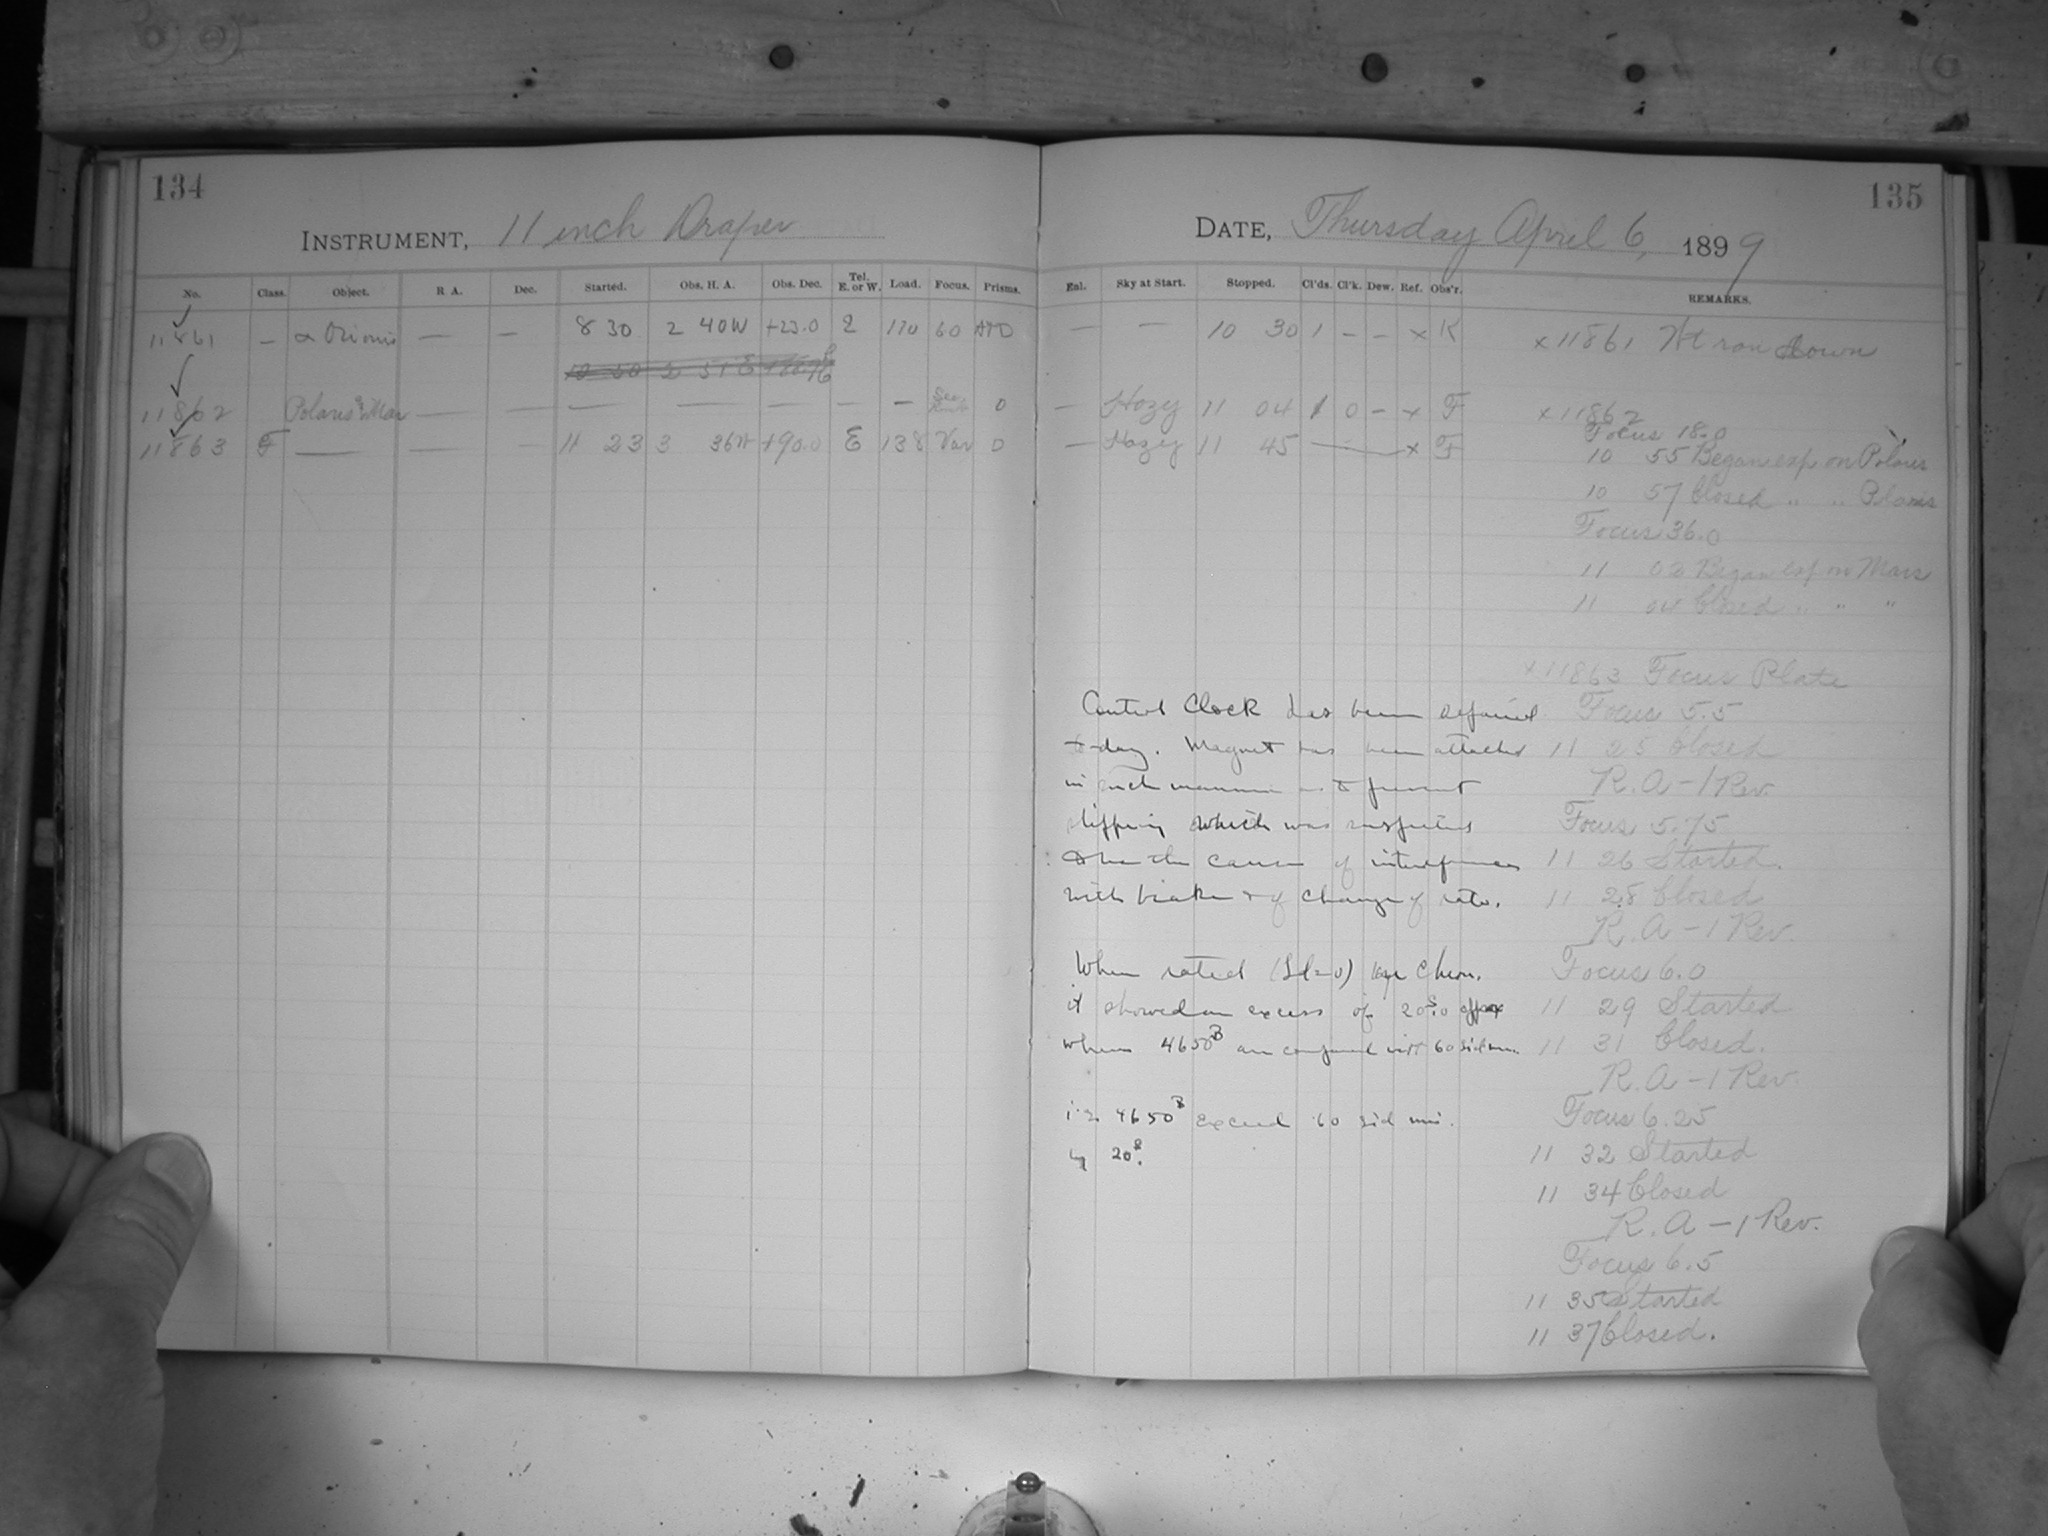 134
INSTRUMENT, 11 inch Draper
No. Class. Object. R A. Dec. Started. Obs. H. A. Obs. Dec. Tel. E. or W. Load. Focus. Prisms.
11861 — α Orionis — — 8 30 2 40W +23.0 E 170 60
11862 Polaris & Mar — — — — — — — See 0
11863 F — — — 11 23 3 36W +90.0 E 138 Var 0
135
DATE, Thursday April 6, 1899
Eal. Sky at Start. Stopped. Cl'ds. Cl'k. Dew. Ref. Obs'r. REMARKS.
— — 10 30 1 — — x K x 11861 Wt ran down
— Hazy 11 04 1 0 — x F x 11862
— Hazy 11 45 — x F Focus 18.0
10 55 Began exp on Polaris
10 57 Closed " " Polaris
Focus 36.0
11 02 Began exp on Mars
11 04 Closed " " "
x 11863 Focus Plate
Focus 5.5
11 25 Closed
R.A — 1 Rev.
Focus 5.75
11 26 Started.
11 28 Closed
R.A — 1 Rev.
Focus 6.0
11 29 Started
11 31 Closed.
R.A — 1 Rev.
Focus 6.25
11 32 Started
11 34 Closed
R.A — 1 Rev.
Focus 6.5
11 35 Started
11 37 Closed.
Control Clock has been repaired
to-day. Magnet has been attached
in such manner as to prevent
slipping which was suspected
to be the cause of interference
with brake & of change of rate.
When rated by Chron.
it showed an excess of 20ˢ.0 approx
when 4650ᴮ are compared with 60 sid min.
i.e. 4650ᴮ exceed 60 sid min.
by 20ˢ.